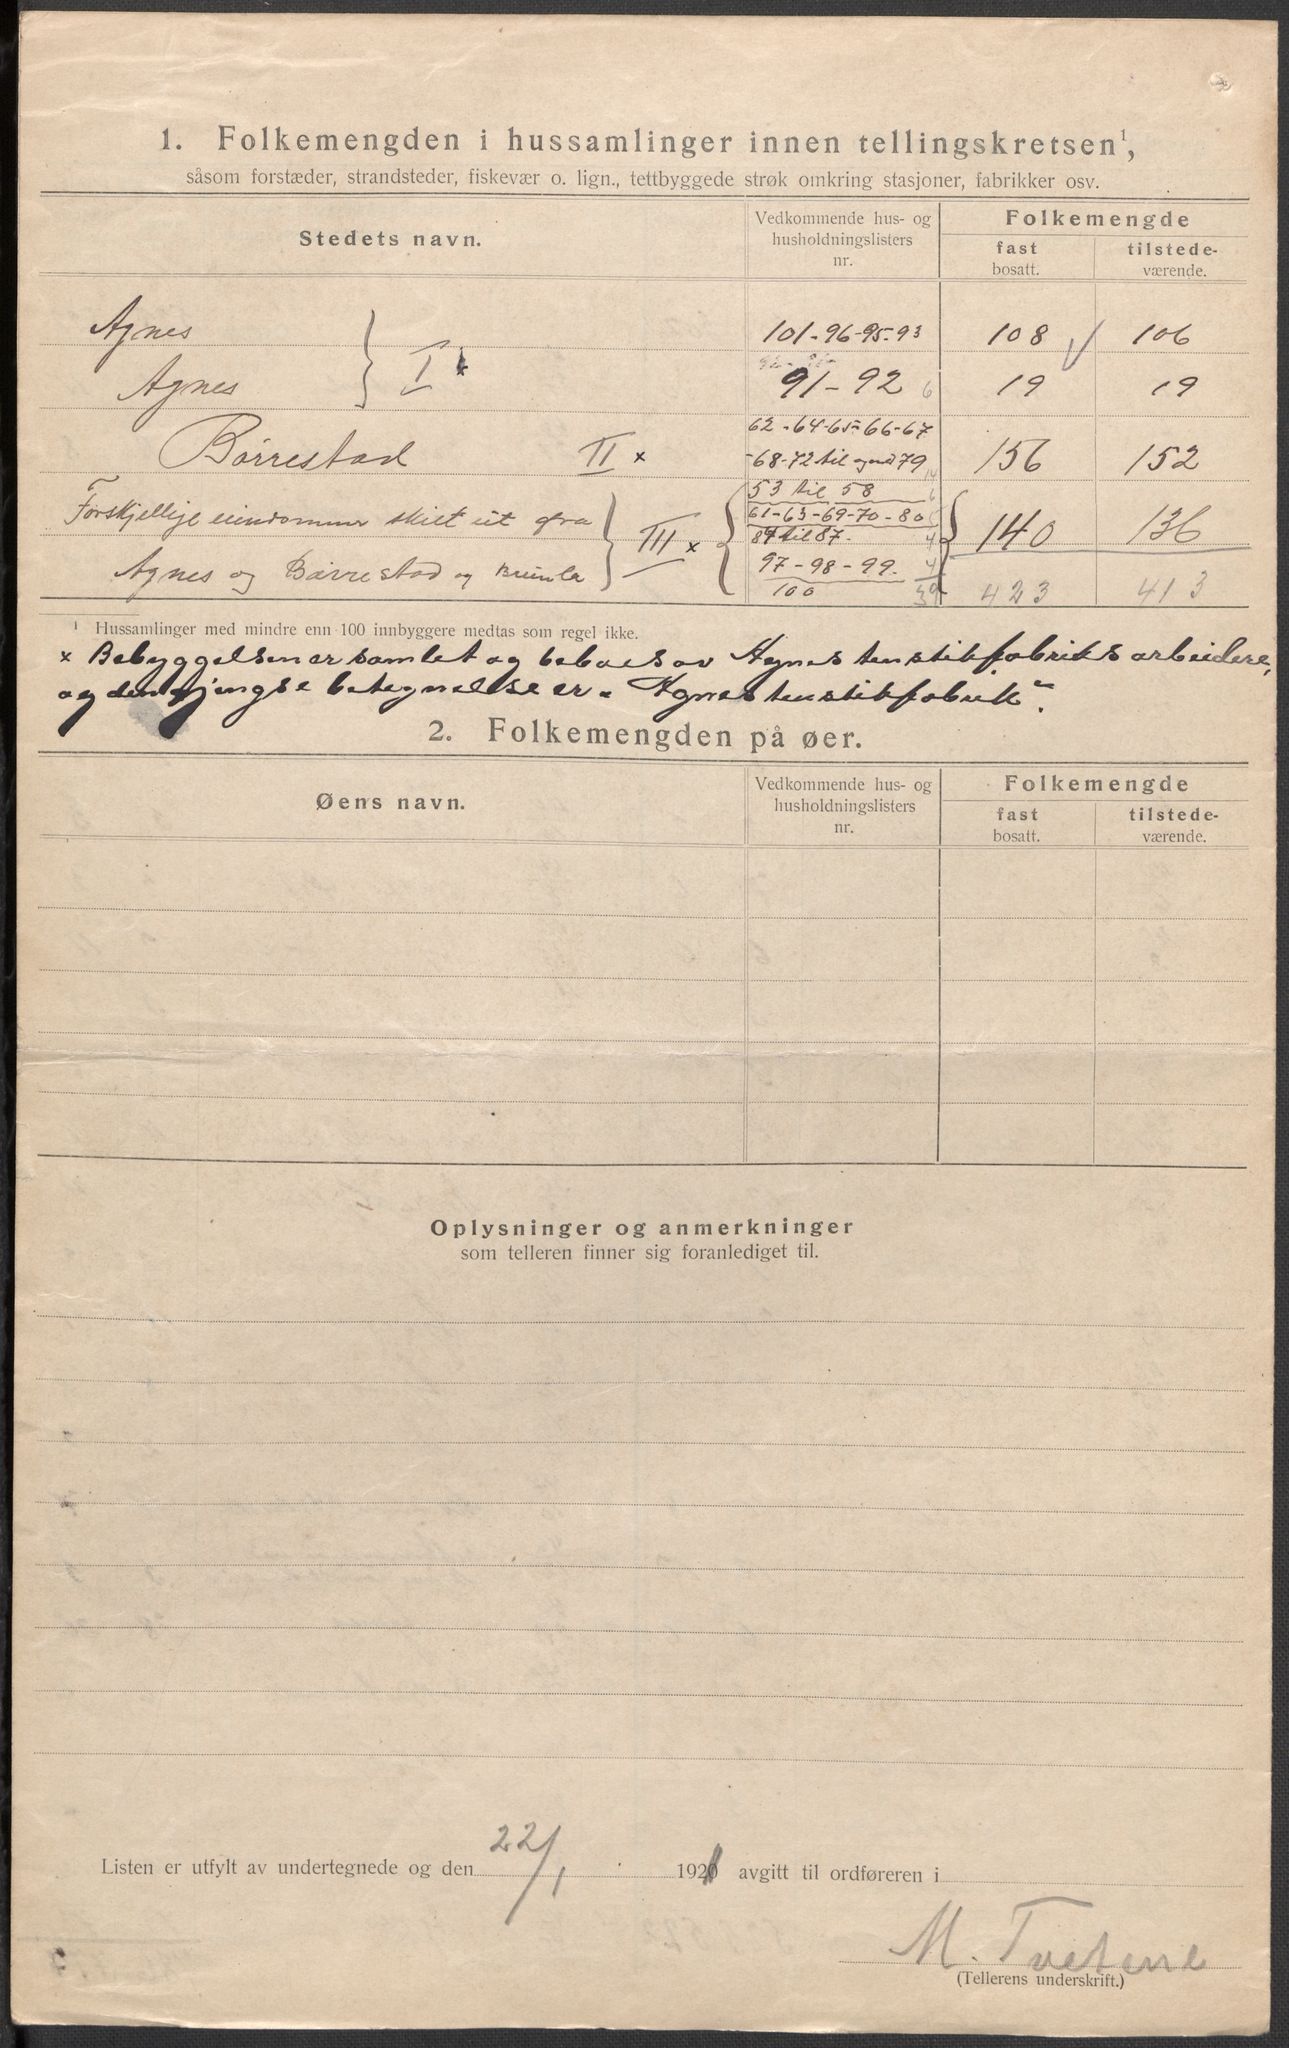 1. Folkemengden i hussamlinger innen tellingskretsen¹,
såsom forstæder, strandsteder, fiskevær o. lign., tettbyggede strøk omkring stasjoner, fabrikker osv.
Stedets navn. Vedkommende hus- og husholdningslisters nr. Folkemengde fast bosatt. tilstede-værende.
Agnes } I x 101-96-95-93 108 106
Agnes 91-92 6 19 19
Børrestad II x 62-64-65-66-67
-68-72 til og med 79 14 156 152
Forskjellige eiendommer skilt ut fra } III x { 53 til 58 6
61-63-69-70-80 } 140 136
84 til 87. 4
Agnes og Børrestad og Brunla 97-98-99. 4
100 39 423 413
¹ Hussamlinger med mindre enn 100 innbyggere medtas som regel ikke.
x Bebyggelsen er samlet og beboes av Agnes tenstikfabriks arbeidere,
og den gjengse betegnelse er „Agnes tenstikfabrik".
2. Folkemengden på øer.
Øens navn. Vedkommende hus- og husholdningslisters nr. Folkemengde fast bosatt. tilstede-værende.
Oplysninger og anmerkninger
som telleren finner sig foranlediget til.
Listen er utfylt av undertegnede og den 22/1 1921 avgitt til ordføreren i
M. Tvetene
(Tellerens underskrift.)